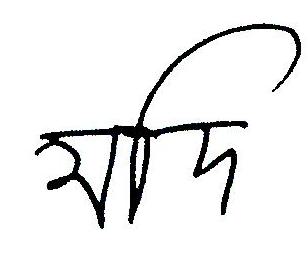 যদি